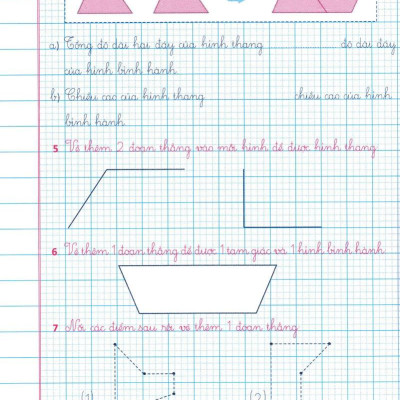 a) Tổng độ dài hai đáy của hình thang độ dài đáy
của hình bình hành.
b) Chiều cao của hình thang chiều cao của hình
bình hành.
5 Vẽ thêm 2 đoạn thẳng vào mỗi hình để được hình thang.
6 Vẽ thêm 1 đoạn thẳng để được 1 tam giác và 1 hình bình hành.
7 Nối các điểm sau rồi vẽ thêm 1 đoạn thẳng
(1) (2)